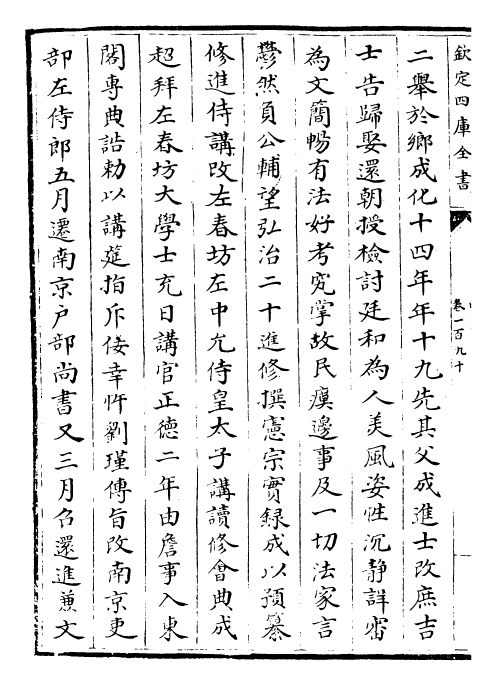 欽定四庫全書
卷一百九十
二舉於鄉成化十四年年十九先其父成進士改庶吉
士告歸娶還朝授檢討廷和為人美風姿性沉静詳審
為文簡暢有法好考究掌故民瘼邊事及一切法家言
鬱然負公輔望弘治二十進修撰憲宗實録成以預纂
修進侍講改左春坊左中允侍皇太子講讀修會典成
超拜左春坊大學士充日講官正徳二年由詹事入東
閣専典誥勅以講筵指斥佞幸忤劉瑾傳旨改南京吏
部左侍郎五月遷南京户部尚書又三月召還進兼文